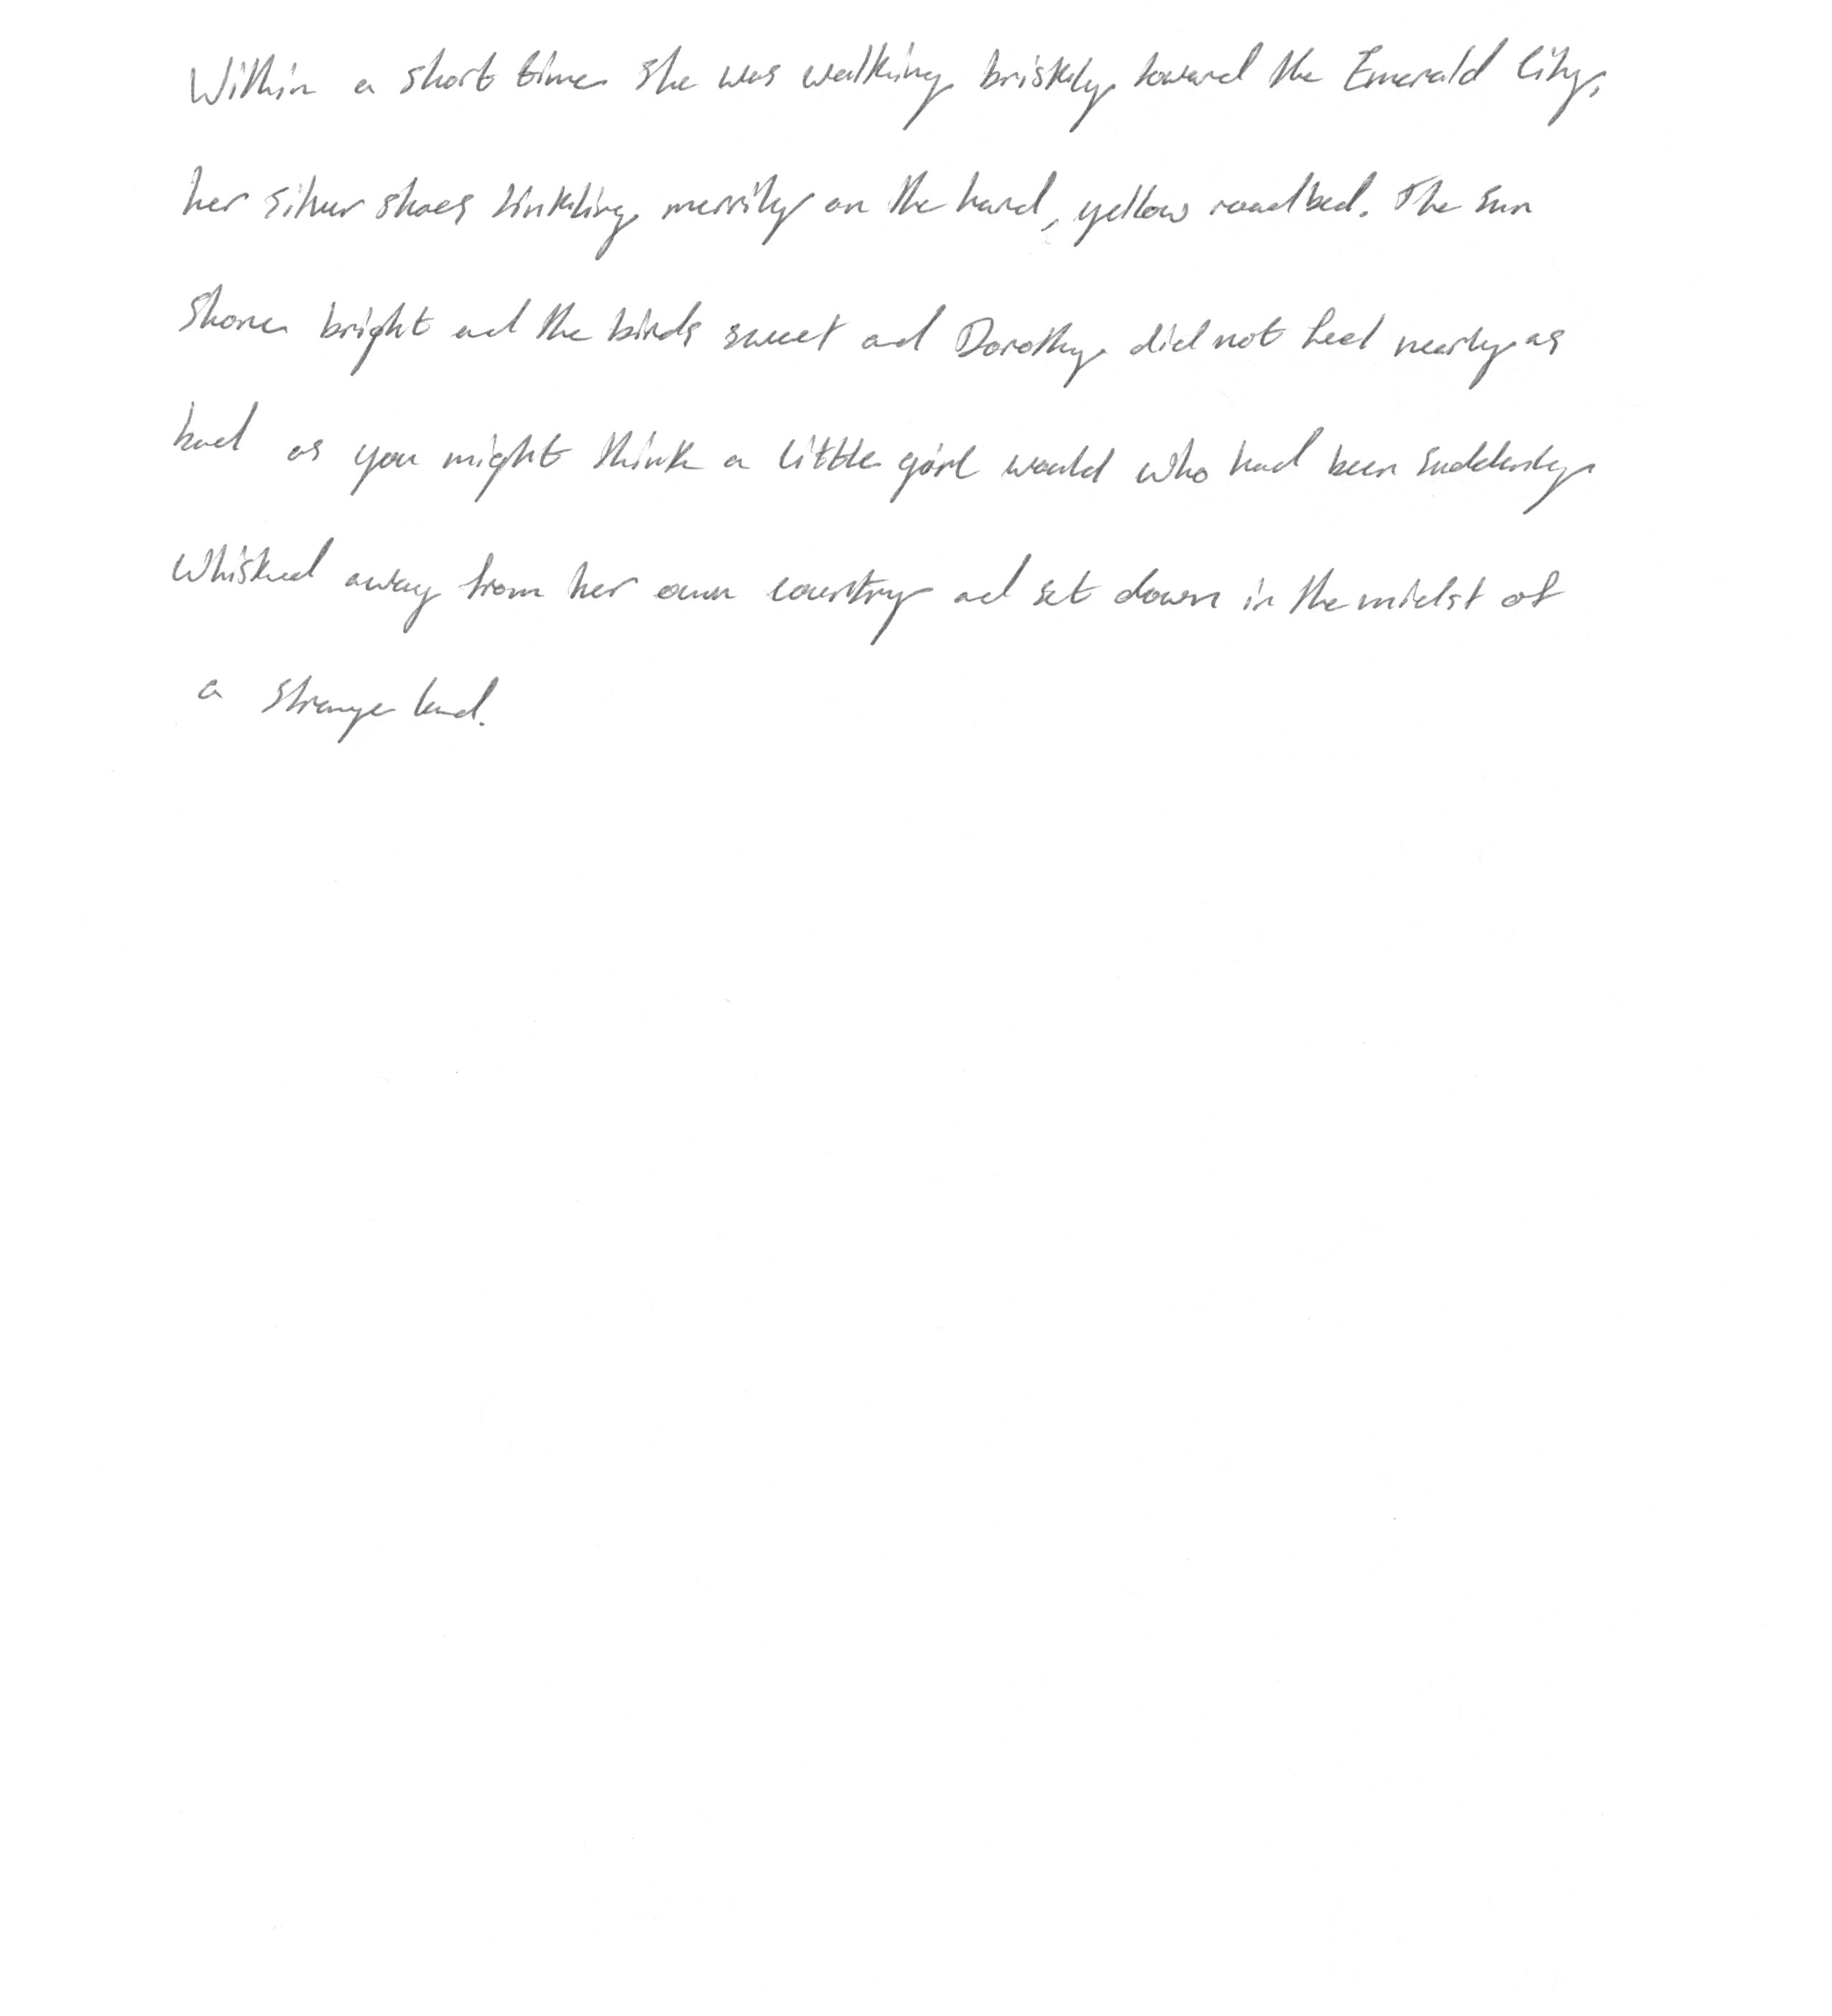 Within a short time she was walking briskly toward the Emerald City,
her silver shoes tinkling merrily on the hard, yellow roadbed. The sun
shone bright and the birds sweet and Dorothy did not feel nearly as
bad as you might think a little girl would who had been suddenly
whisked away from her own country and set down in the midst of
a strange land.